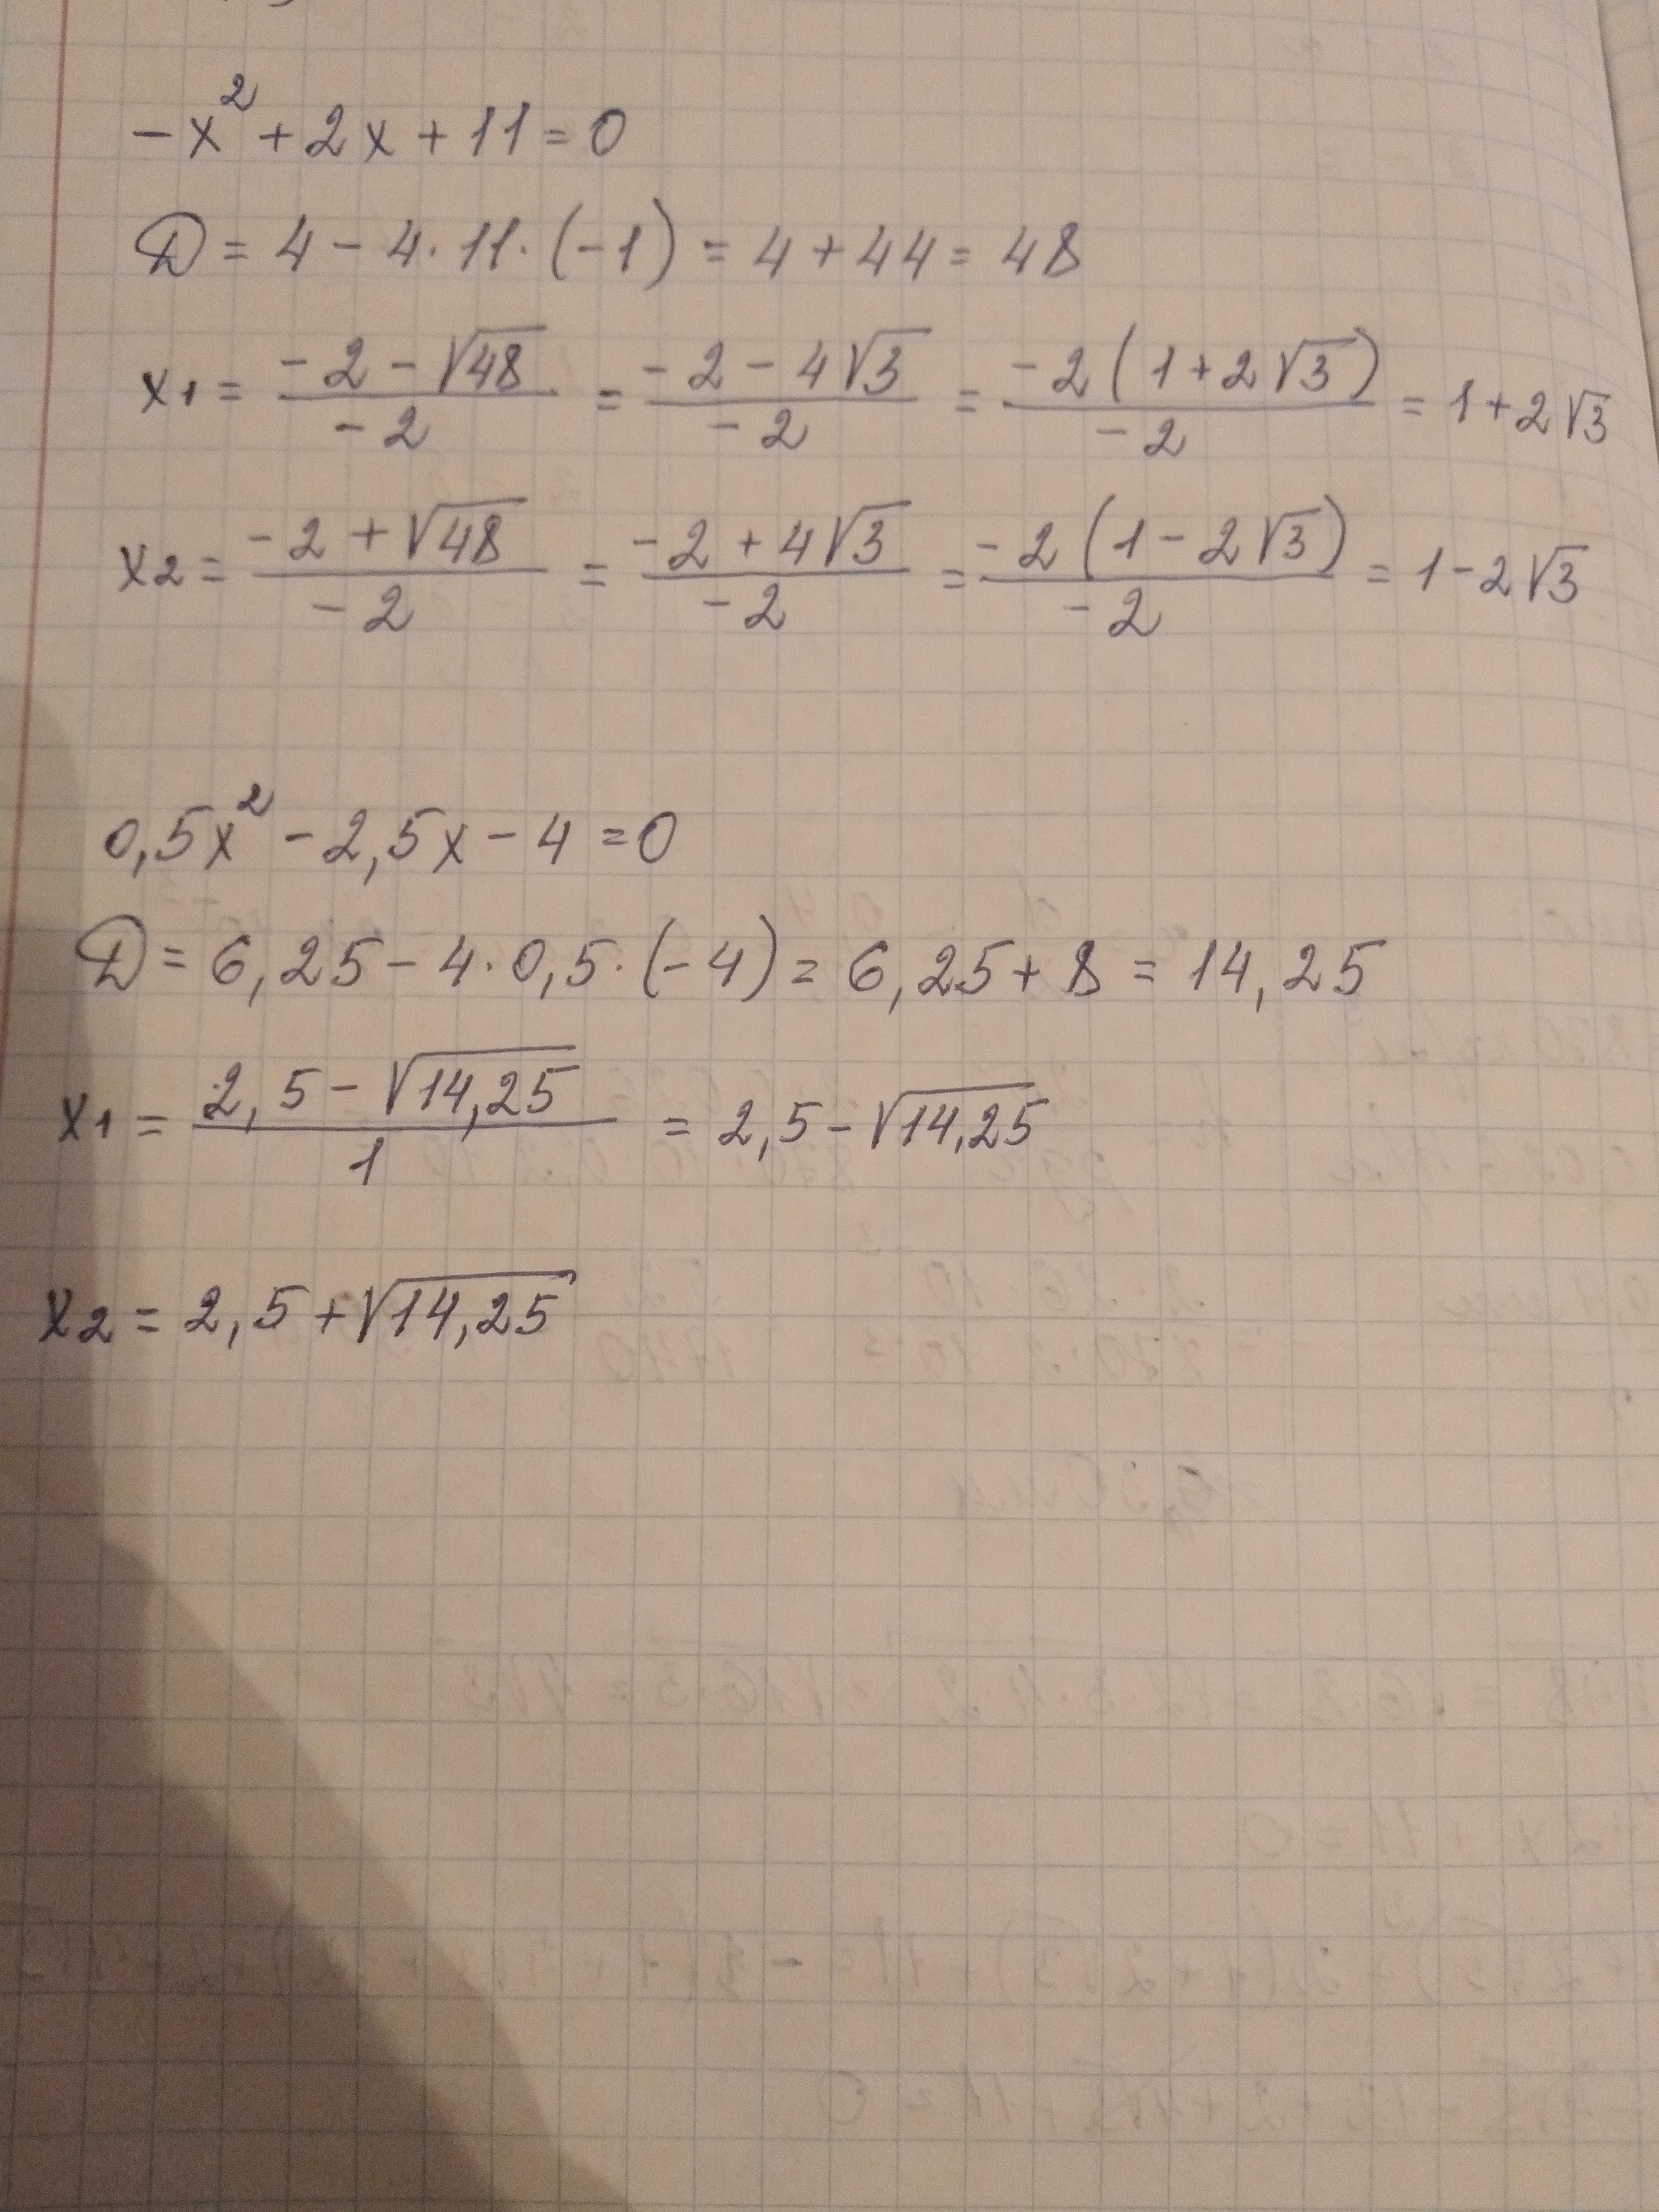 -x² + 2x + 11 = 0
D = 4 - 4·11·(-1) = 4 + 44 = 48
x1 = (-2 - √48)/(-2) = (-2 - 4√3)/(-2) = (-2(1 + 2√3))/(-2) = 1 + 2√3
x2 = (-2 + √48)/(-2) = (-2 + 4√3)/(-2) = (-2(1 - 2√3))/(-2) = 1 - 2√3
0,5x² - 2,5x - 4 = 0
D = 6,25 - 4·0,5·(-4) = 6,25 + 8 = 14,25
x1 = (2,5 - √14,25)/1 = 2,5 - √14,25
x2 = 2,5 + √14,25